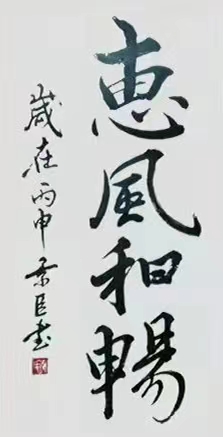 惠風和暢
歲在丙申景臣書